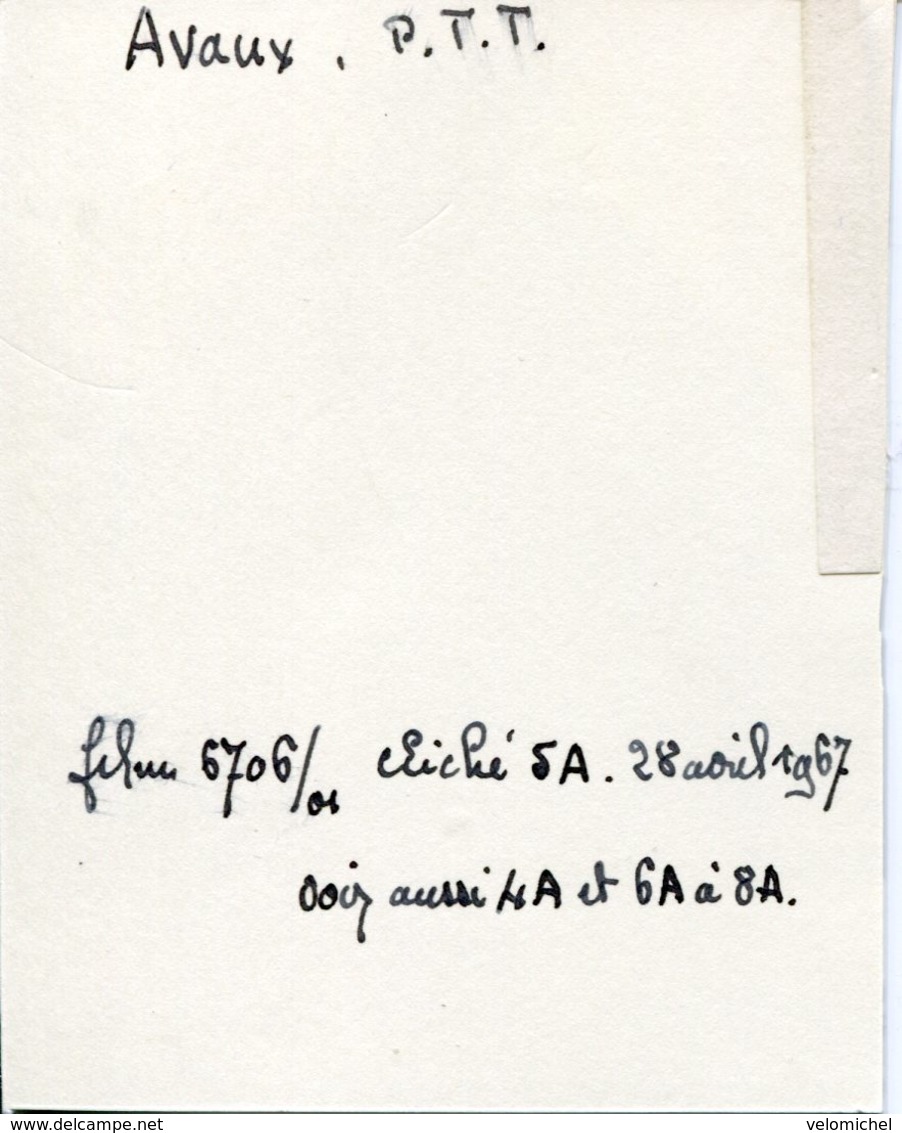 Avaux. P.T.T.
film 6706/01 cliché 5A. 28 avril 1967
voir aussi 4A et 6A à 8A.
delcampe.net
velomichel